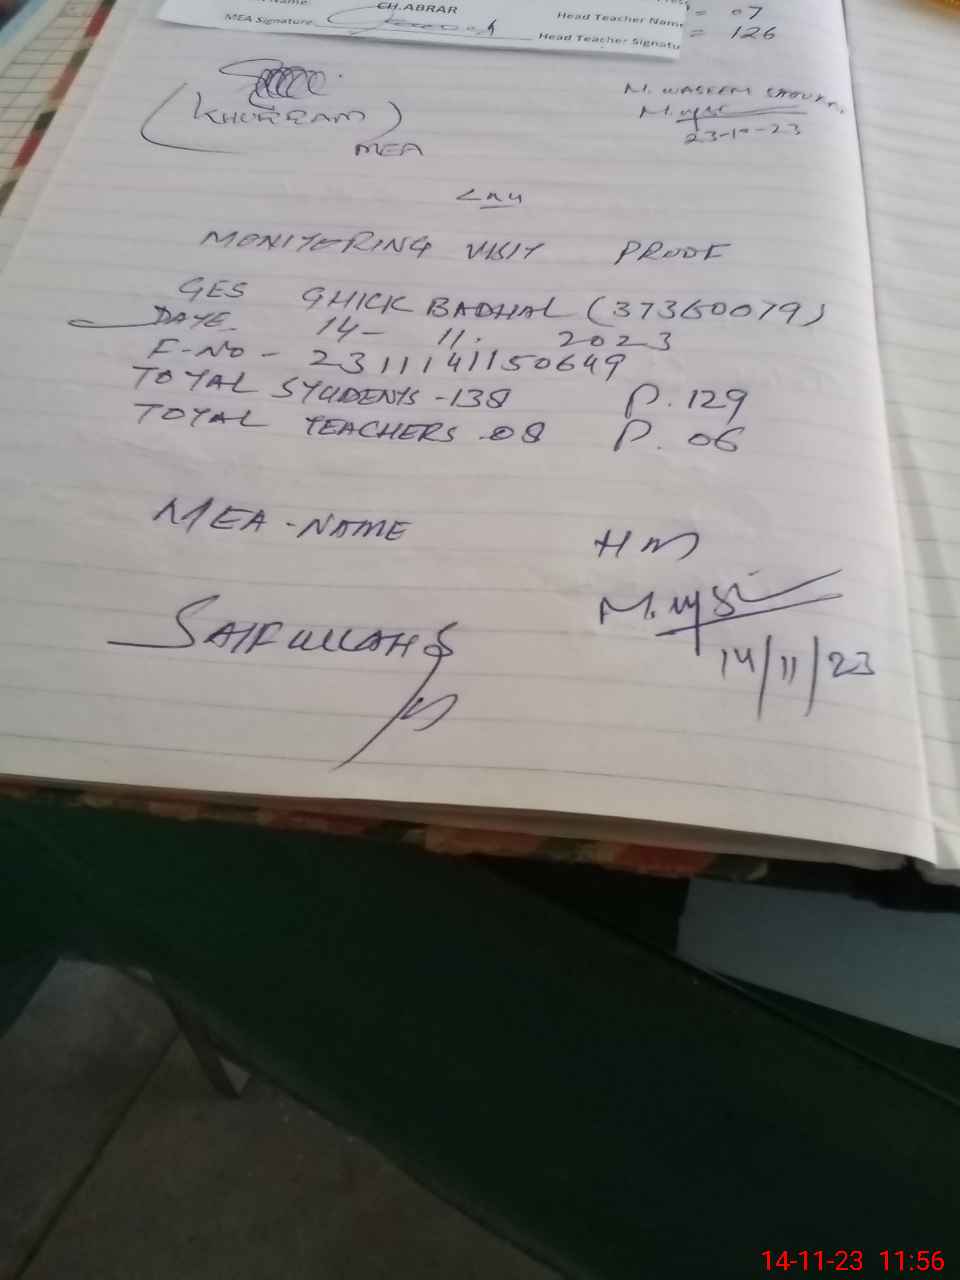 CH.ABRAR
MEA Signature:
Head Teacher Name
Head Teacher Signatu
= 07
= 126
(KHURRAM)
MEA
M. WASEEM
23-10-23
MONITERING VISIT PROOF
GES GHICK BADHAL (37360079)
DATE 14- 11. 2023
F-NO - 23111411150649
TOTAL STUDENTS -138 P. 129
TOTAL TEACHERS .08 P. 06
MEA -NAME
HM
SAIFULLAH
14/11/23
14-11-23 11:56